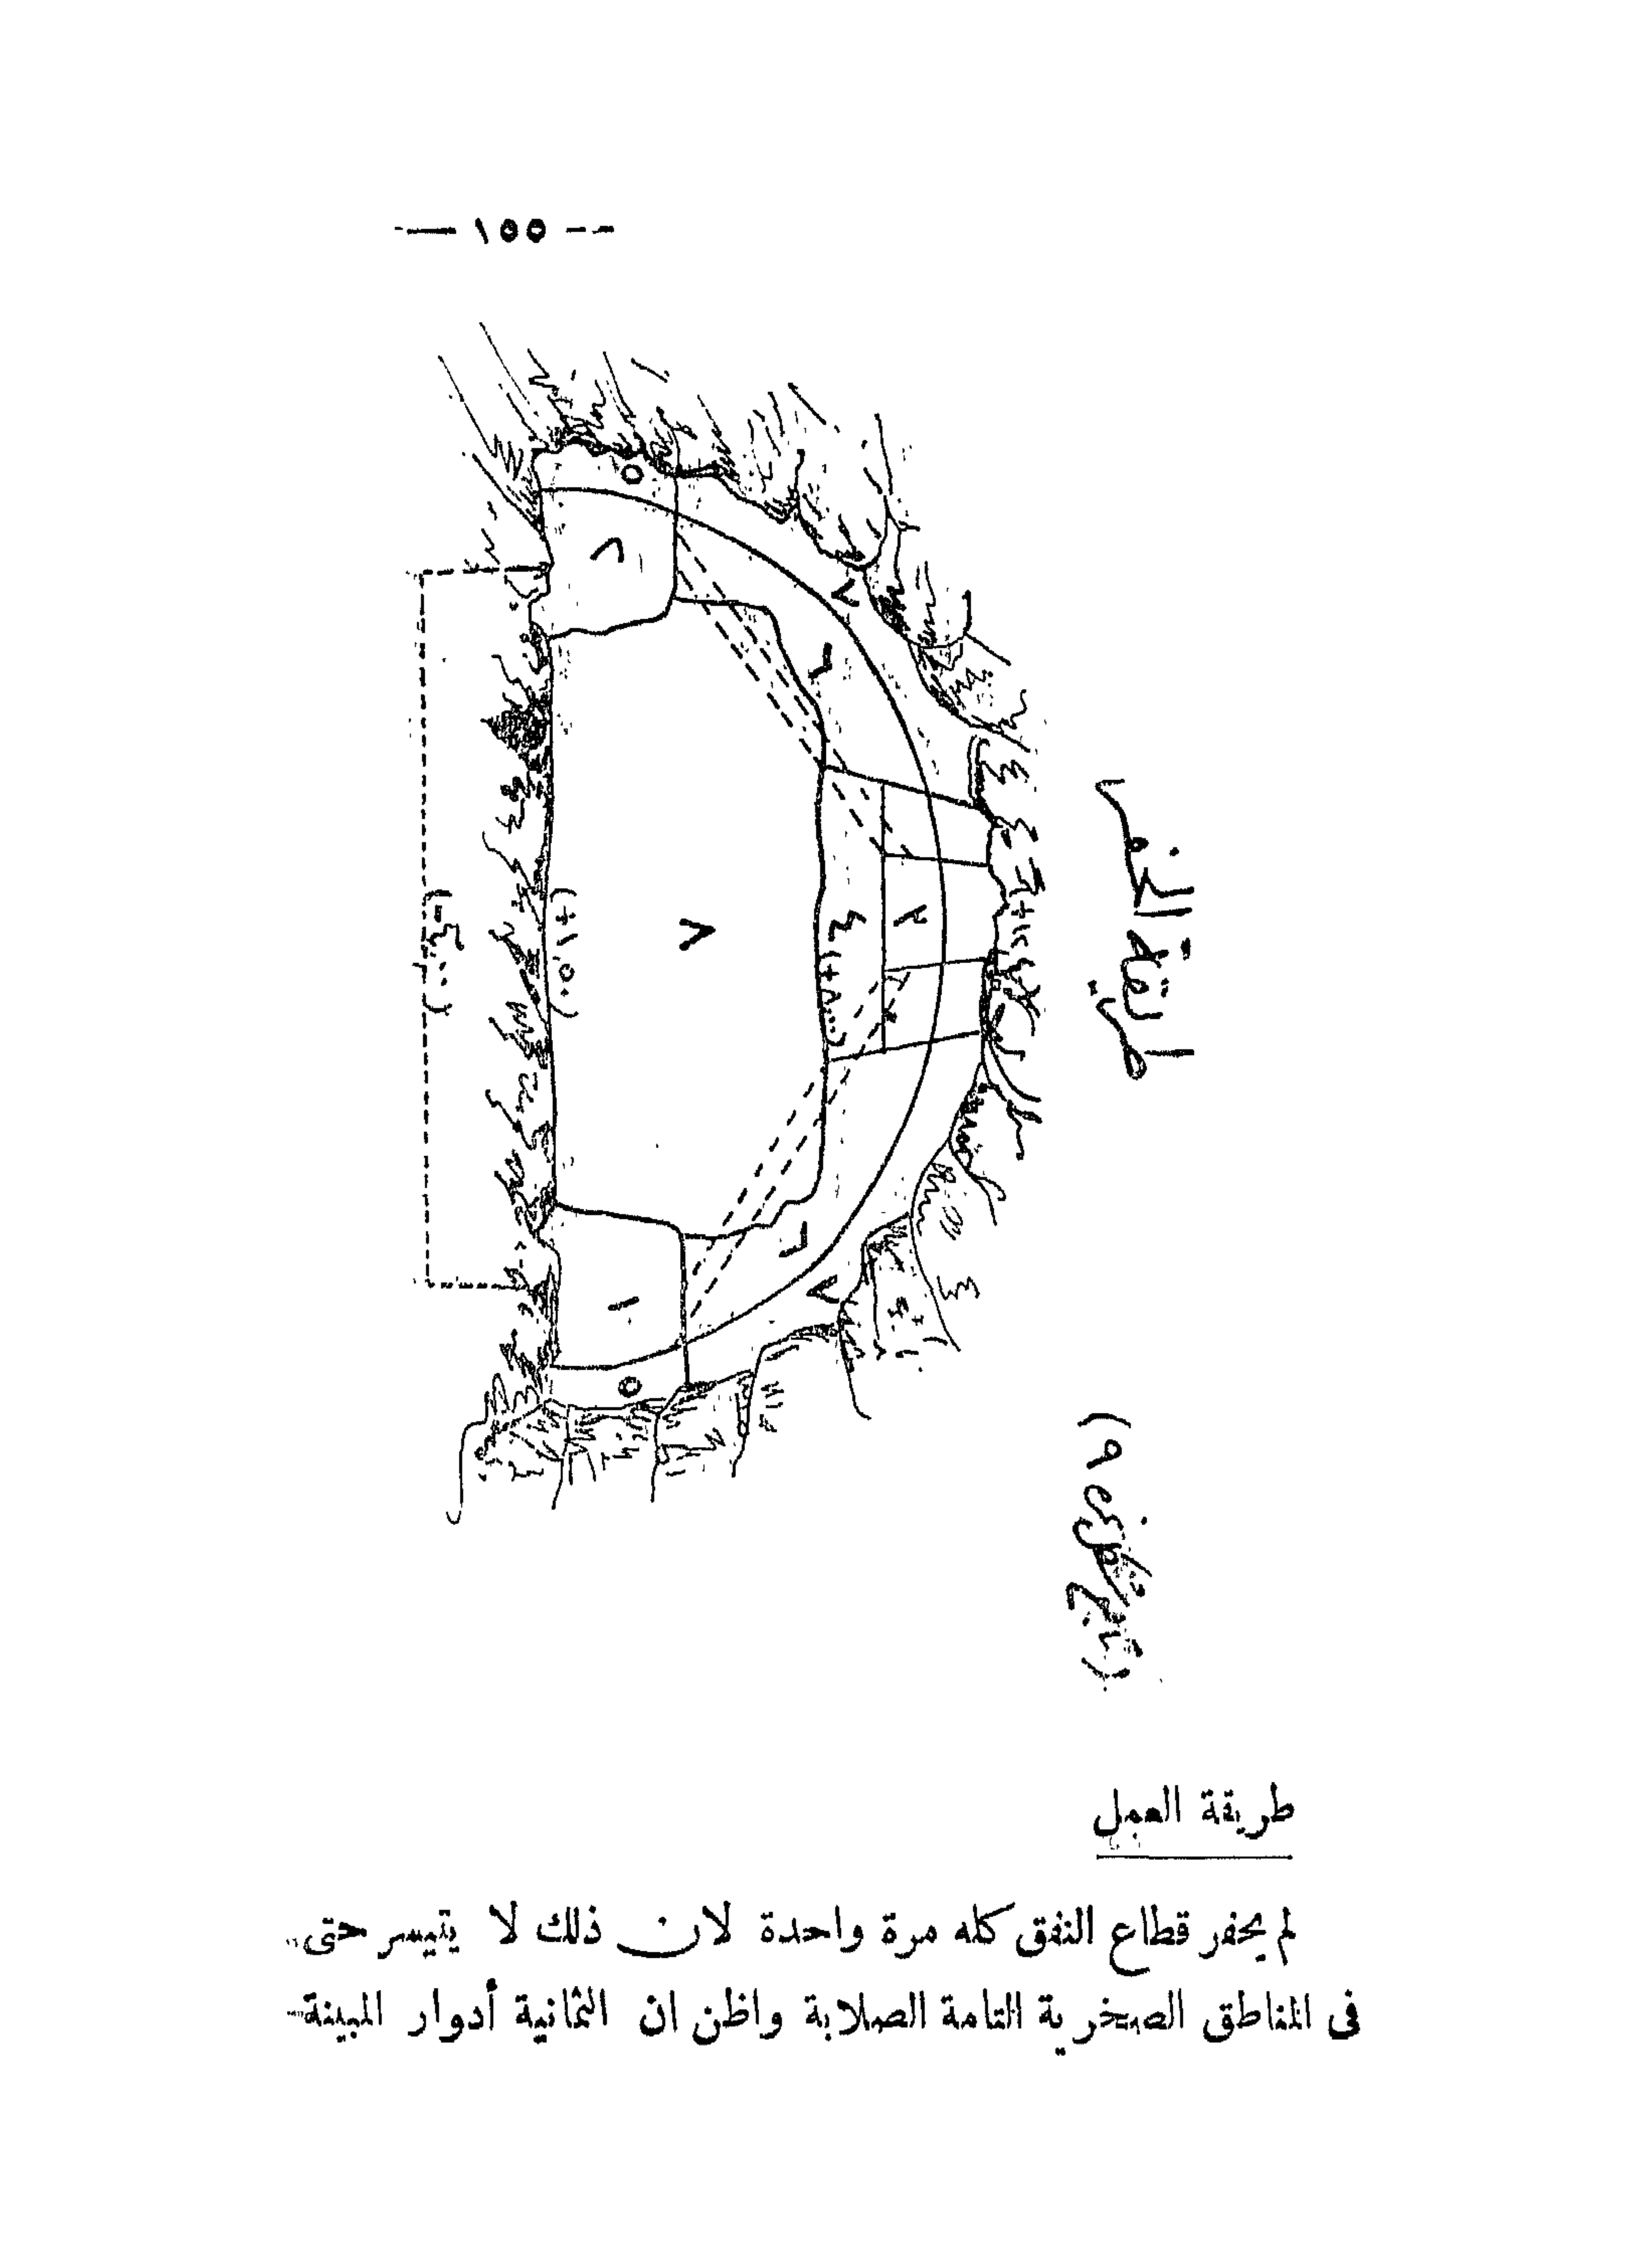 — ١٥٥ —
طريقة الحفر
٥
٢
٧
٦
٣
٤
(+٨٫٠٠)
٨
(+١٫٥٠)
(-٤٫٠٠)
٦
٧
١
٥
طريقة العمل
لم يحفر قطاع النفق كله مرة واحدة لان ذلك لا يتيسر حتى
فى المناطق الصخرية التامة الصلابة واظن ان الثمانية أدوار المبينة